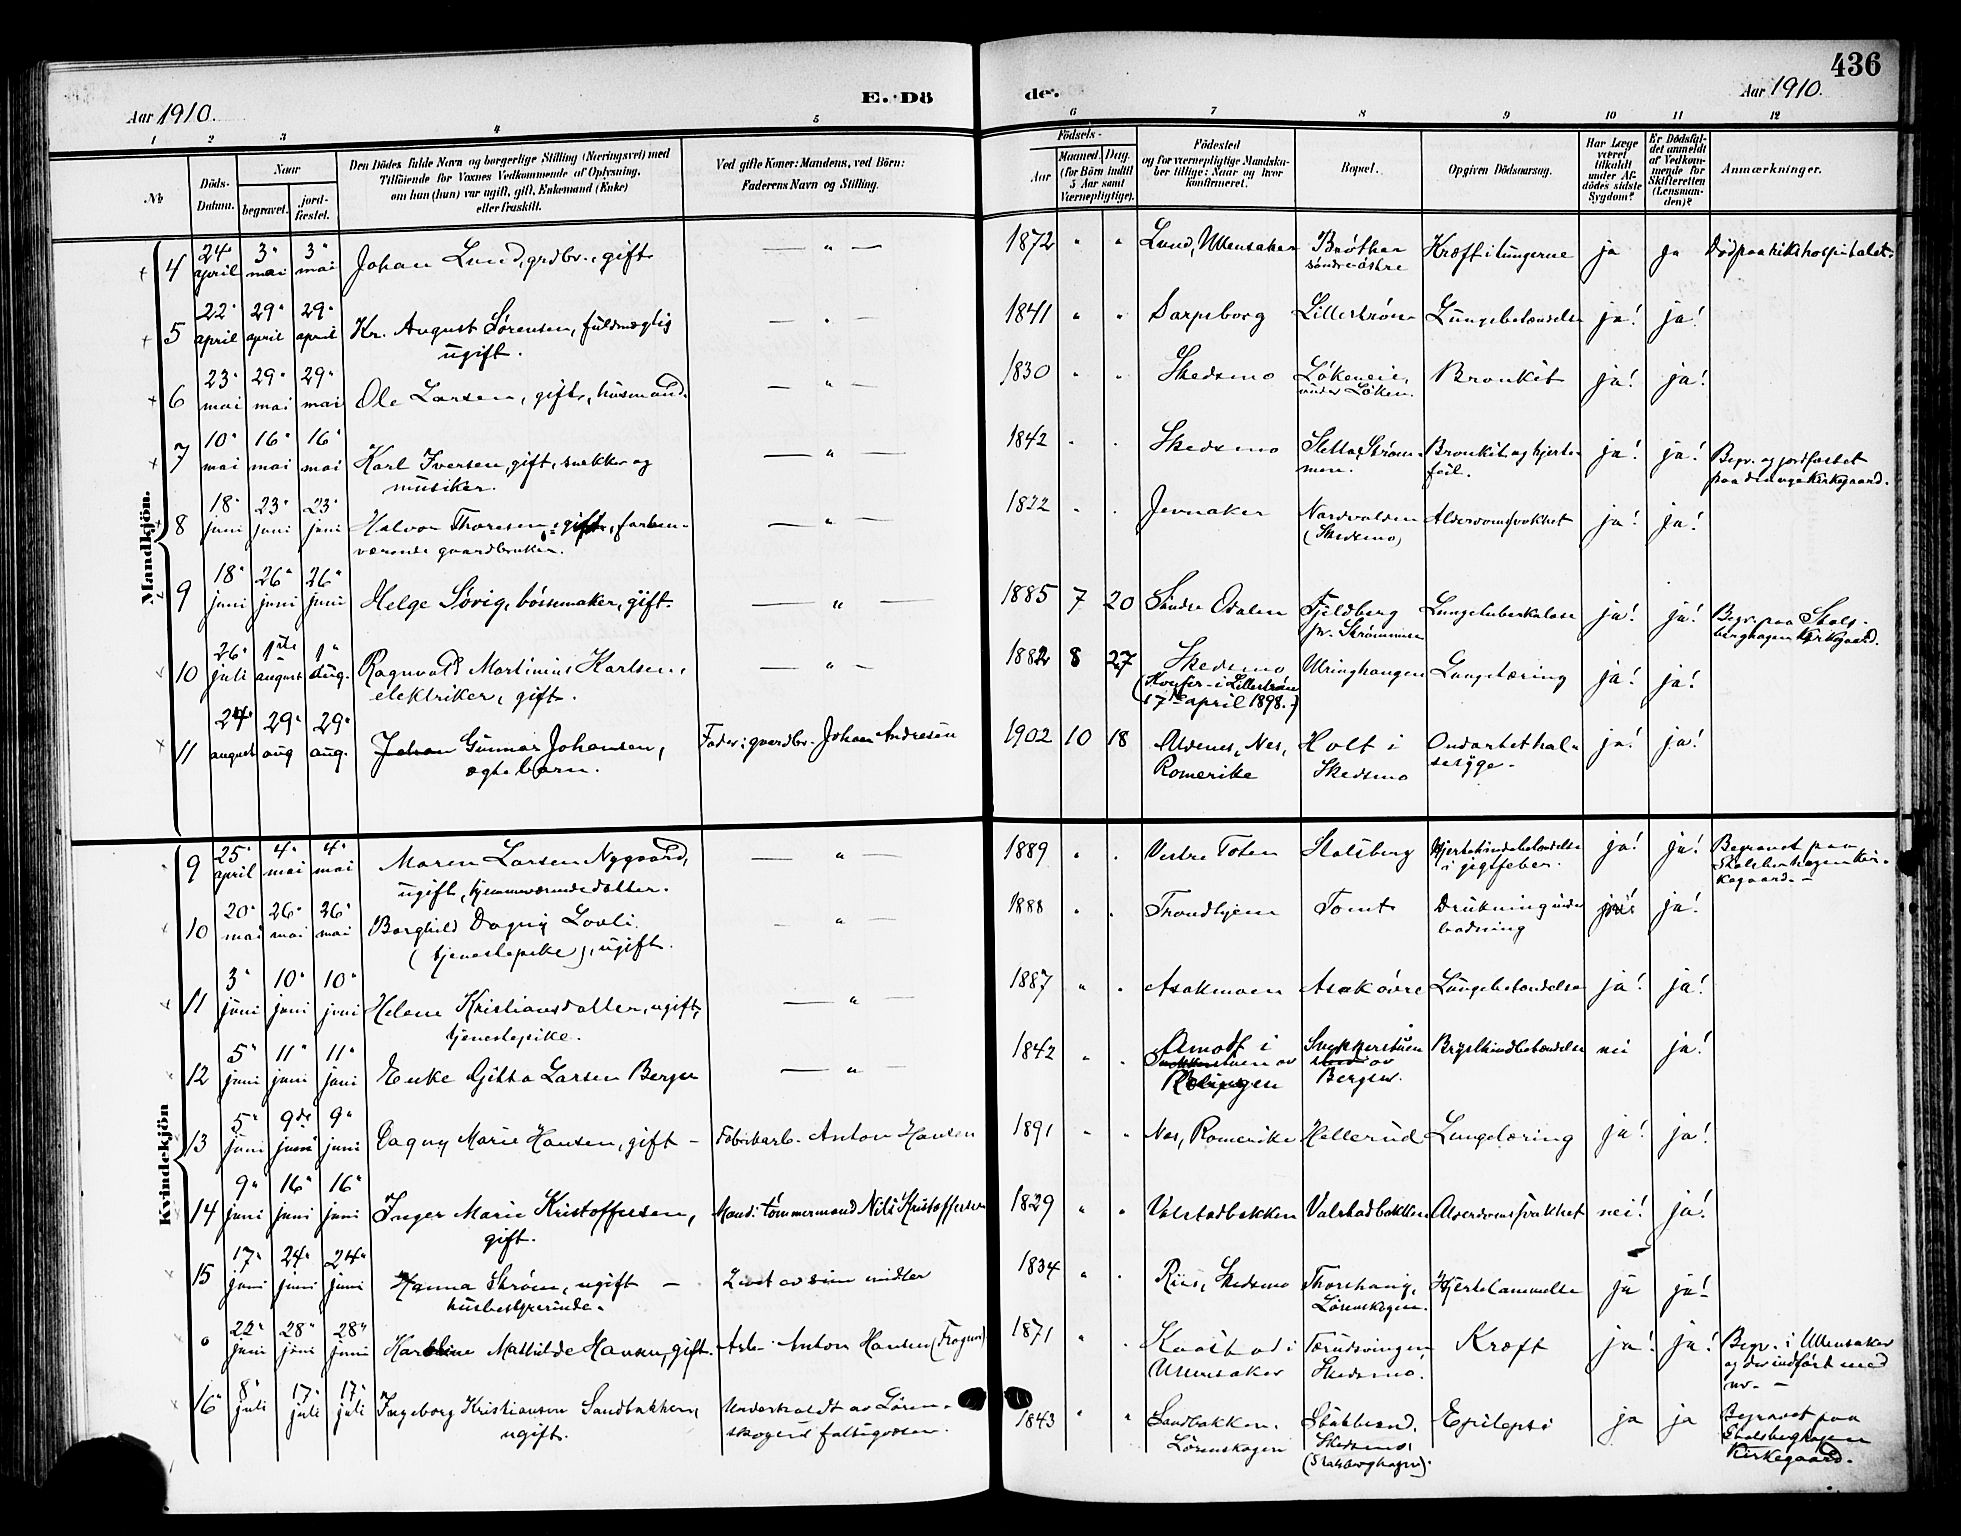 436
Aar 1910.
E. Dö
de.
Aar 1910.
1 2 3 4 5 6 7 8 9 10 11 12
No
Döds-Datum.
Naar
begravet.
jord-fæstet.
Den Dödes fulde Navn og borgerlige Stilling (Næringsvei) med
Tilföiende for Voxnes Vedkommende af Oplysning,
om han (hun) var ugift, gift, Enkemand (Enke)
eller fraskilt.
Ved gifte Koner: Mandens, ved Börn:
Faderens Navn og Stilling.
Födsels-
Aar
Maaned. Dag.
(for Börn indtil
5 Aar samt
Værnepligtige).
Födested
og for værnepligtige Mandska-
ber tillige: Naar og hvor
konfirmeret.
Bopæl.
Opgiven Dödsaarsag.
Har Læge
været
tilkaldt
under Af-
dödes sidste
Sygdom?
Er Dödsfal-
det anmeldt
af Vedkom-
mende for
Skifteretten
(Lensman-
den)?
Anmærkninger.
Mandkjön.
4 24 april 3 mai 3 mai Johan Lund, grdbr., gift 1872 Lund, Ullensaker Bröther söndre östre Kræft i lungerne ja ja Död paa rikshospitalet.
5 22 april 29 april 29 april Kr. August Sörensen, fuldmægtig
ugift. 1841 Sarpsborg Lilleström Lungebetændelse ja! ja!
6 23 mai 29 mai 29 mai Ole Larsen, gift, husmand. 1830 Skedsmo Lökeneie, under Löken. Bronkit ja! ja!
7 10 mai 16 mai 16 mai Karl Iversen, gift, snekker og
musiker. 1842 Skedsmo Sletta, Ström-
men. Bronkit og hjerte-
feil. ja! ja! Begr. og jordfæstet
paa den nye kirkegaard.
8 18 juni 23 juni 23 juni Halvor Thoresen, gift, forhen-
værende gaardbruker. 1822 Jevnaker Nordvolden
(Skedsmo) Alderdomssvakhet ja! ja!
9 18 juni 26 juni 26 juni Helge Sörig, bössemaker, gift. 1885 7 20 Söndre Odalen Fjeldberg
pr. Strömmen Lungetuberkulose ja! ja! Begr. paa Skols-
berghagen Kirkegaard.
10 26 juli 1ste august 1 aug. Ragnvald Martinius Karlsen,
elektriker, gift. 1882 8 27 Skedsmo
(Konfir. i Lilleström
17de april 1898.) Lungetæring ja! ja!
11 24 august 29 aug 29 aug. Johan Gunnar Johansen,
egte barn. Fader: gaardbr. Johan Andresen 1902 10 18 Nes,
Romerike Holt i
Skedsmo Ondartet hal-
sesyge. ja! ja!
Kvindekjön
9 25 april 4 mai 4 mai Maren Larsen Nygaard,
ugift, hjemmeværende datter. 1889 Vestre Toten Stalsberg Hjertehindebetændelse
i gigtfeber. ja! ja! Begravet paa
Skolsberhagen Kir-
kegaard.
10 20 mai 26 mai 26 mai Borghild Dagny Lovli.
(tjenestepike), ugift. 1888 Trondhjem Tomt Drukning under
badning ja!
11 3 juni 10 juni 10 juni Helene Kristiansdatter, ugift,
tjenestepike. 1887 Asakmoen Asak övre Lungebetændelse ja! ja!
12 5 juni 11 juni 11 juni Enke Gitta Larsen Berger 1842 Amodt i
Snekkerstuen av
Bergen. Brysthindebetændelse nei ja!
13 5 juni 9de juni 9 juni Dagny Marie Hansen, gift – Fabrikarb. Anton Hansen 1891 Nes, Romerike Hellerud Lungetæring ja! ja!
14 9 juni 16 juni 16 juni Inger Marie Kristoffersen,
gift. Mand: tömmermand Nils Kristoffersen 1829 Valstadbakken Valstadbakken Alderdomssvakhet nei! ja!
15 17 juni 24 juni 24 juni Hanna Ström, ugift –
husbestyrerinde. Levet av sine midler 1834 Riis, Skedsmo Thorshaug,
Lörenskogen. Hjertelammelse ja ja!
0 22 juni 28 juni 28 juni Karoline Mathilde Hansen, gift. Arb. Anton Hansen (Frogner) 1871 i
Ullensaker
Skedsmo. Kræft ja! ja! Begr. i Ullensaker
og der indfört med
nr. –
16 8 juli 17 juli 17 juli Ingeborg Kristiansen Sandbakken,
ugift. Underholdt av Lören-
skogens fattigvæsen. 1843 Sandbakken.
Lörenskogen
Skedsmo.
(Stalsberghagen). Epilepsi ja ja Begravet paa
Stalsberghagen
Kirkegaard.